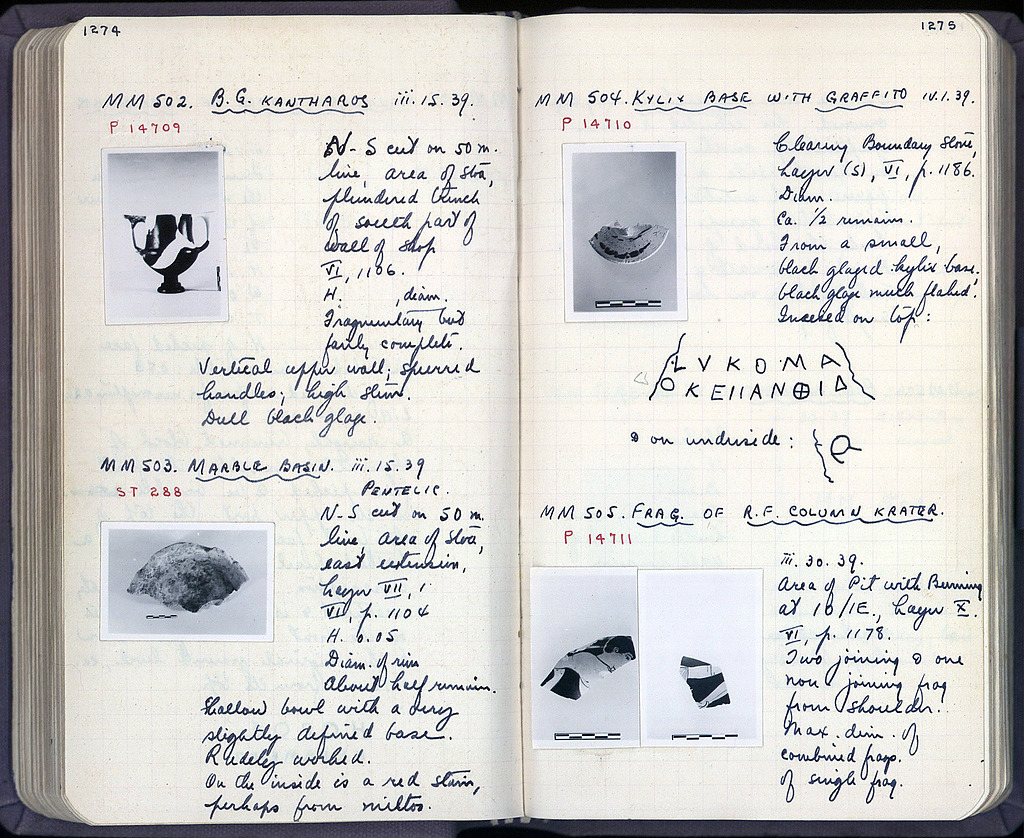 1274
MM 502. B.G. KANTHAROS iii.15.39.
P 14709
N-S cut on 50 m.
line, area of Stoa,
plundered trench
of south part of
wall of shop
VI, 1106.
H. , diam.
Fragmentary but
fairly complete.
Vertical upper wall; spurred
handles; high stem.
Dull black glaze.
MM 503. MARBLE BASIN. iii.15.39
ST 288
PENTELIC.
N-S cut on 50 m.
line, area of Stoa,
east extension,
layer VII,
VI, p. 1104
H. 0.05
Diam. of rim
About half remains.
Shallow bowl with a very
slightly defined base.
Rudely worked.
On the inside is a red stain,
perhaps from miltos.
1275
MM 504. KYLIX BASE WITH GRAFFITO iv.1.39.
P 14710
Clearing Boundary Stone,
layer (s), VI, p. 1186.
Diam.
Ca. 1/2 remains.
From a small,
black glazed kylix base.
black glaze much flaked.
Incised on top:
LVKOMA
OKEIIANΘIΔ
& on underside:
MM 505. FRAG. OF R.F. COLUMN KRATER.
P 14711
iii.30.39.
Area of Pit with Burning
at 10/IE., layer X.
VI, p. 1178.
Two joining & one
non joining frag
from shoulder.
Max. dim. of
combined frags.
of single frag.